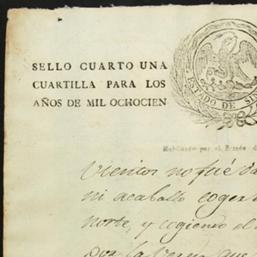 SELLO CUARTO UNA
CUARTILLA PARA LOS
AÑOS DE MIL OCHOCIEN
ESTADO DE SI
Habilitado por el Estado d
Vientos no qué da
ni acaballo coger
norte, y cogiendo el
por la